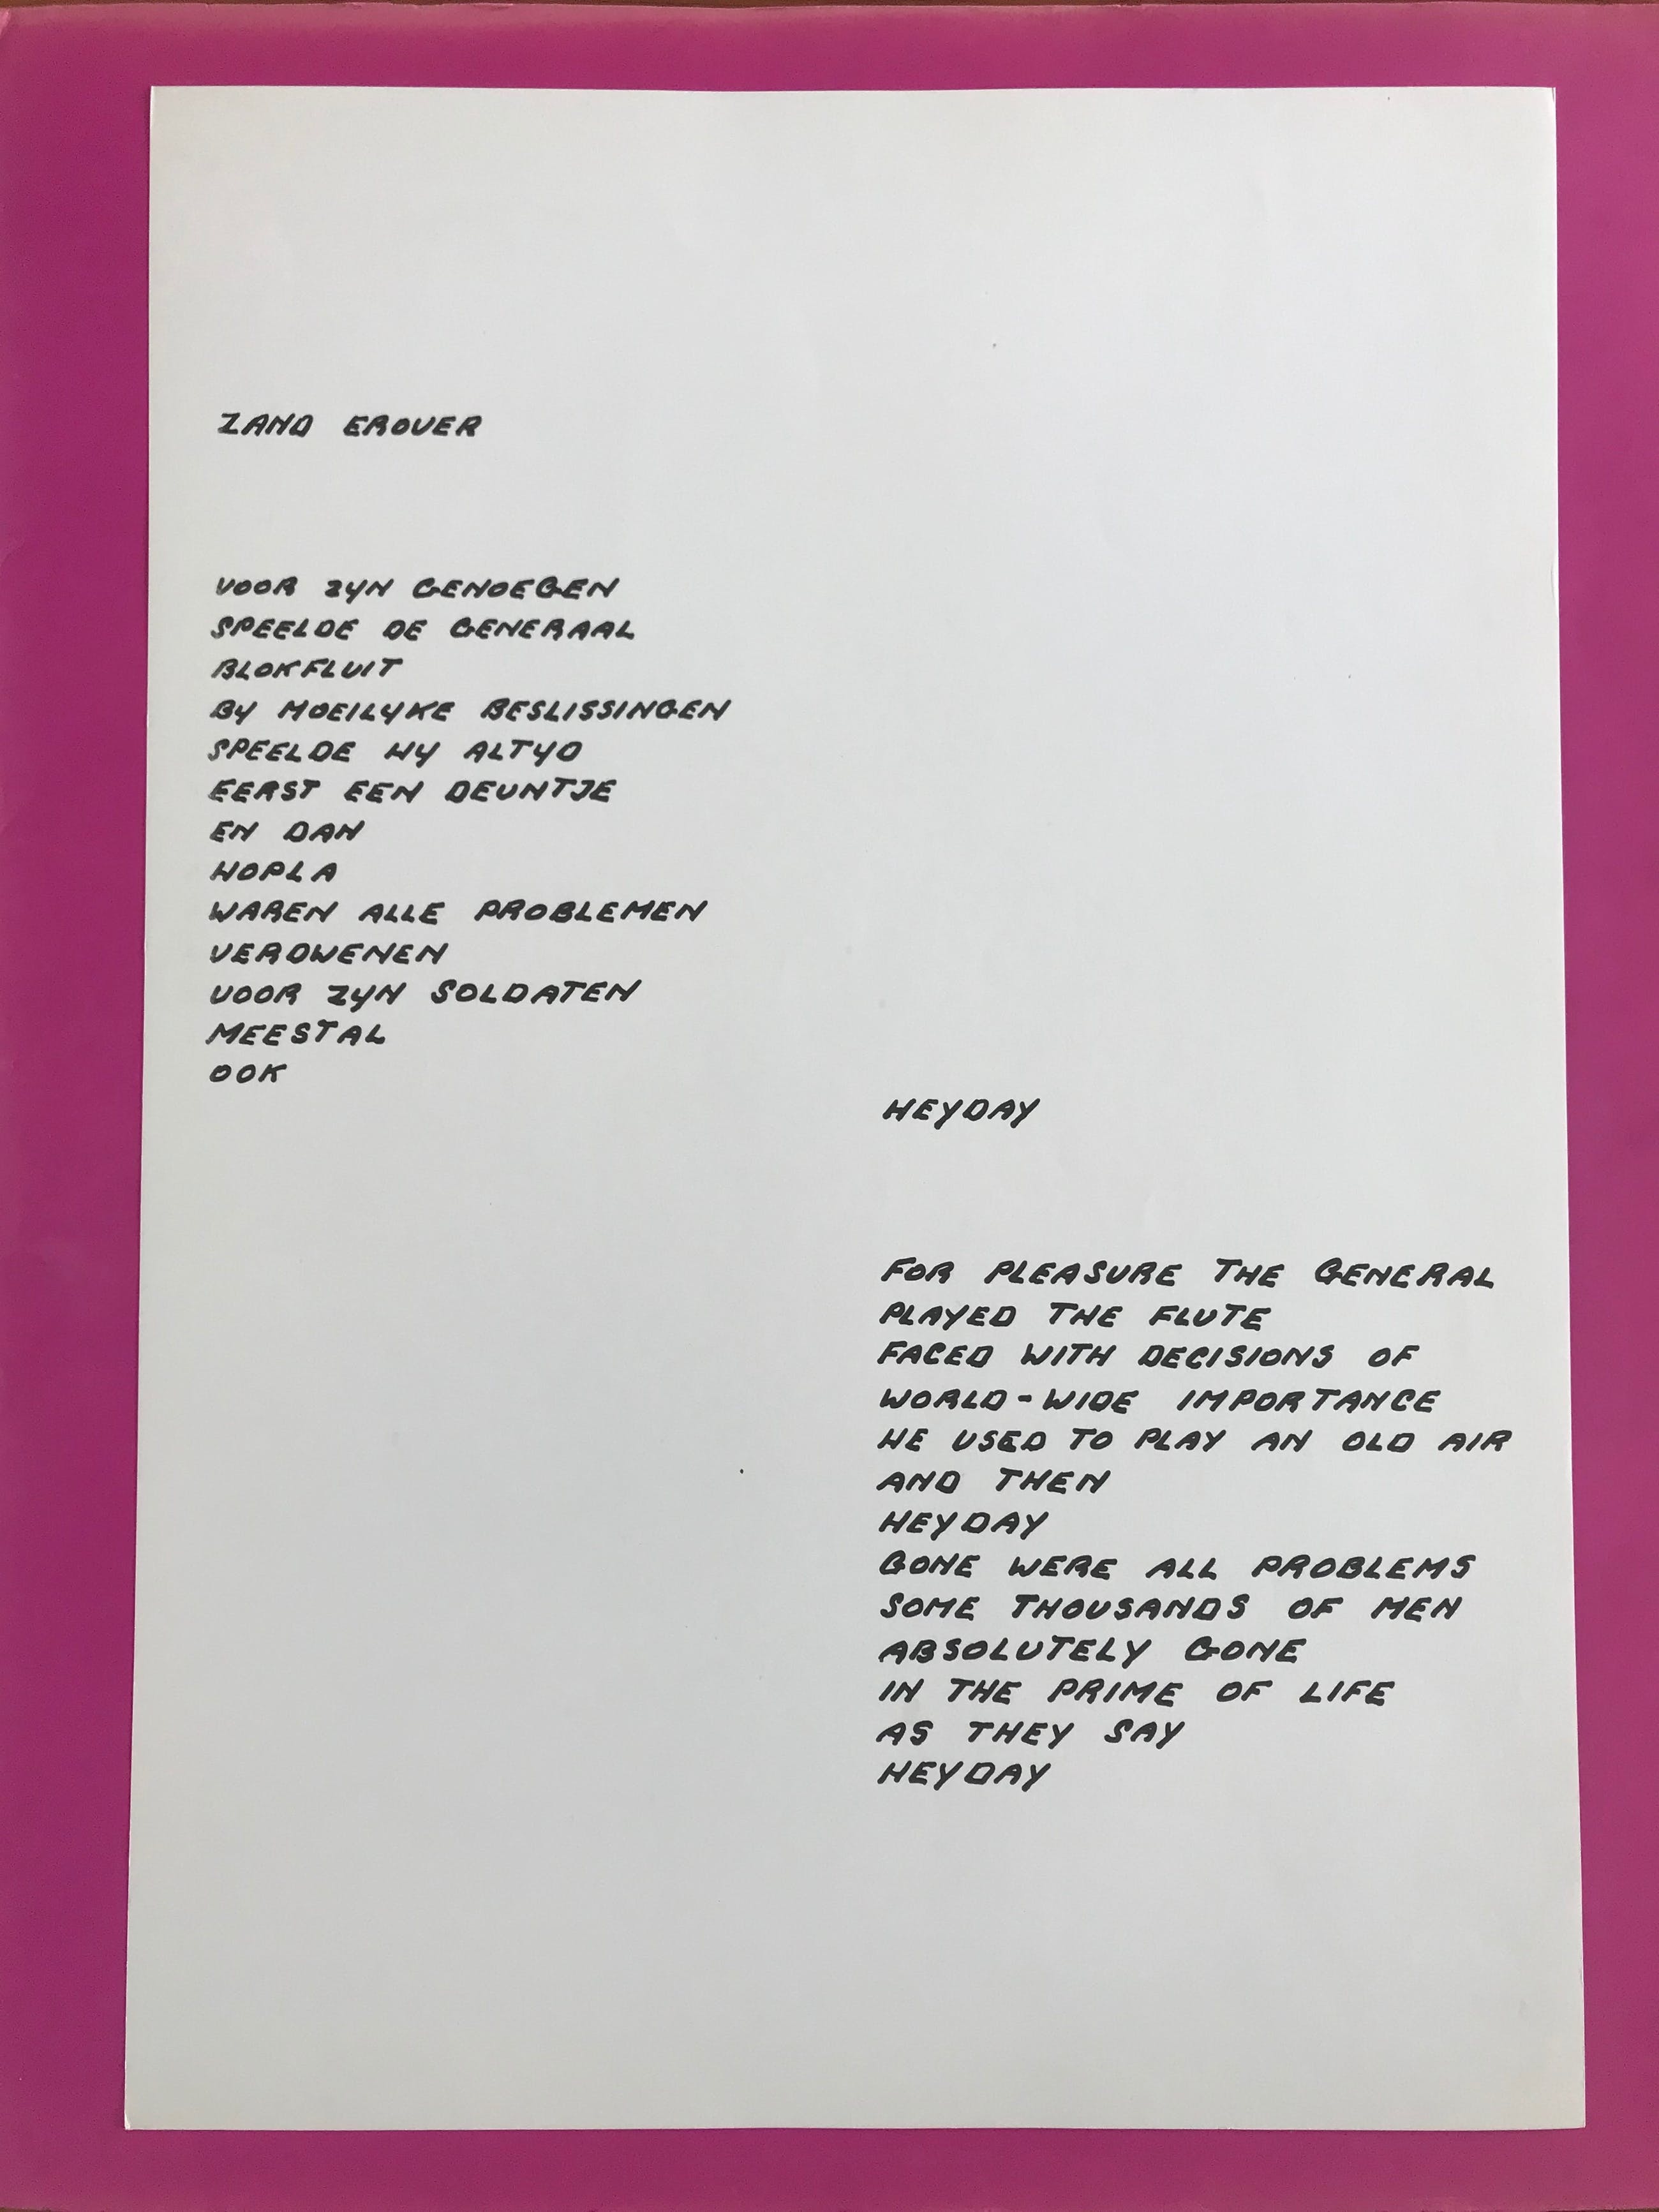 ZAND EROVER
VOOR ZYN GENOEGEN
SPEELDE DE GENERAAL
BLOKFLUIT
BY MOEILYKE BESLISSINGEN
SPEELDE HY ALTYD
EERST EEN DEUNTJE
EN DAN
HOPLA
WAREN ALLE PROBLEMEN
VERDWENEN
VOOR ZYN SOLDATEN
MEESTAL
OOK
HEYDAY
FOR PLEASURE THE GENERAL
PLAYED THE FLUTE
FACED WITH DECISIONS OF
WORLD-WIDE IMPORTANCE
HE USED TO PLAY AN OLD AIR
AND THEN
HEYDAY
GONE WERE ALL PROBLEMS
SOME THOUSANDS OF MEN
ABSOLUTELY GONE
IN THE PRIME OF LIFE
AS THEY SAY
HEYDAY